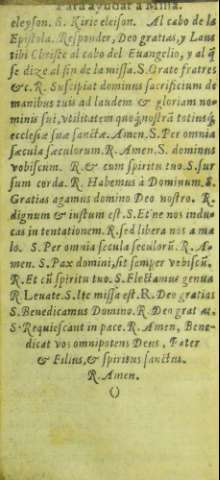 Para ayudar a Missa.
eleyson. S. Kirie eleison. Al cabo de la
Epistola. Responder, Deo gratias, y Laus
tibi Christe al cabo del Euangelio, y al q̃
se dize al fin de la missa. S. Orate fratres
&c. R. Suscipiat dominus sacrificium de
manibus tuis ad laudem & gloriam no-
minis sui, vtilitatem quoq́; nostrã totiusq́;
ecclesiæ suæ sanctæ. Amen. S. Per omnia
sæcula sæculorum. R. Amen. S. dominus
vobiscum. R. & cum spiritu tuo. S. sur
sum corda. R. Habemus à Dominum. S.
Gratias agamus domino Deo nostro. R.
dignum & iustum est. S. Et ne nos indu-
cas in tentationem. R. sed libera nos a ma
lo. S. Per omnia secula seculorũ. R. A-
men. S. Pax domini, sit semper vobiscũ.
R. Et cũ spiritu tuo. S. Flectamus genua
R. Leuate. S. Ite missa est. R. Deo gratias
S. Benedicamus Domino. R. Deo grat as.
S. Requiescant in pace. R. Amen, Bene-
dicat vos omnipotens Deus, Pater
& Filius, & spiritus sanctus.
R. Amen.
()